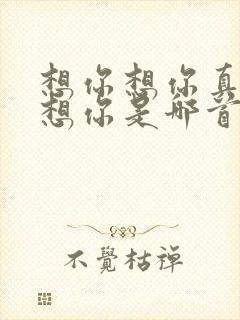 想你想你真
想你是那首
不覺枯禪